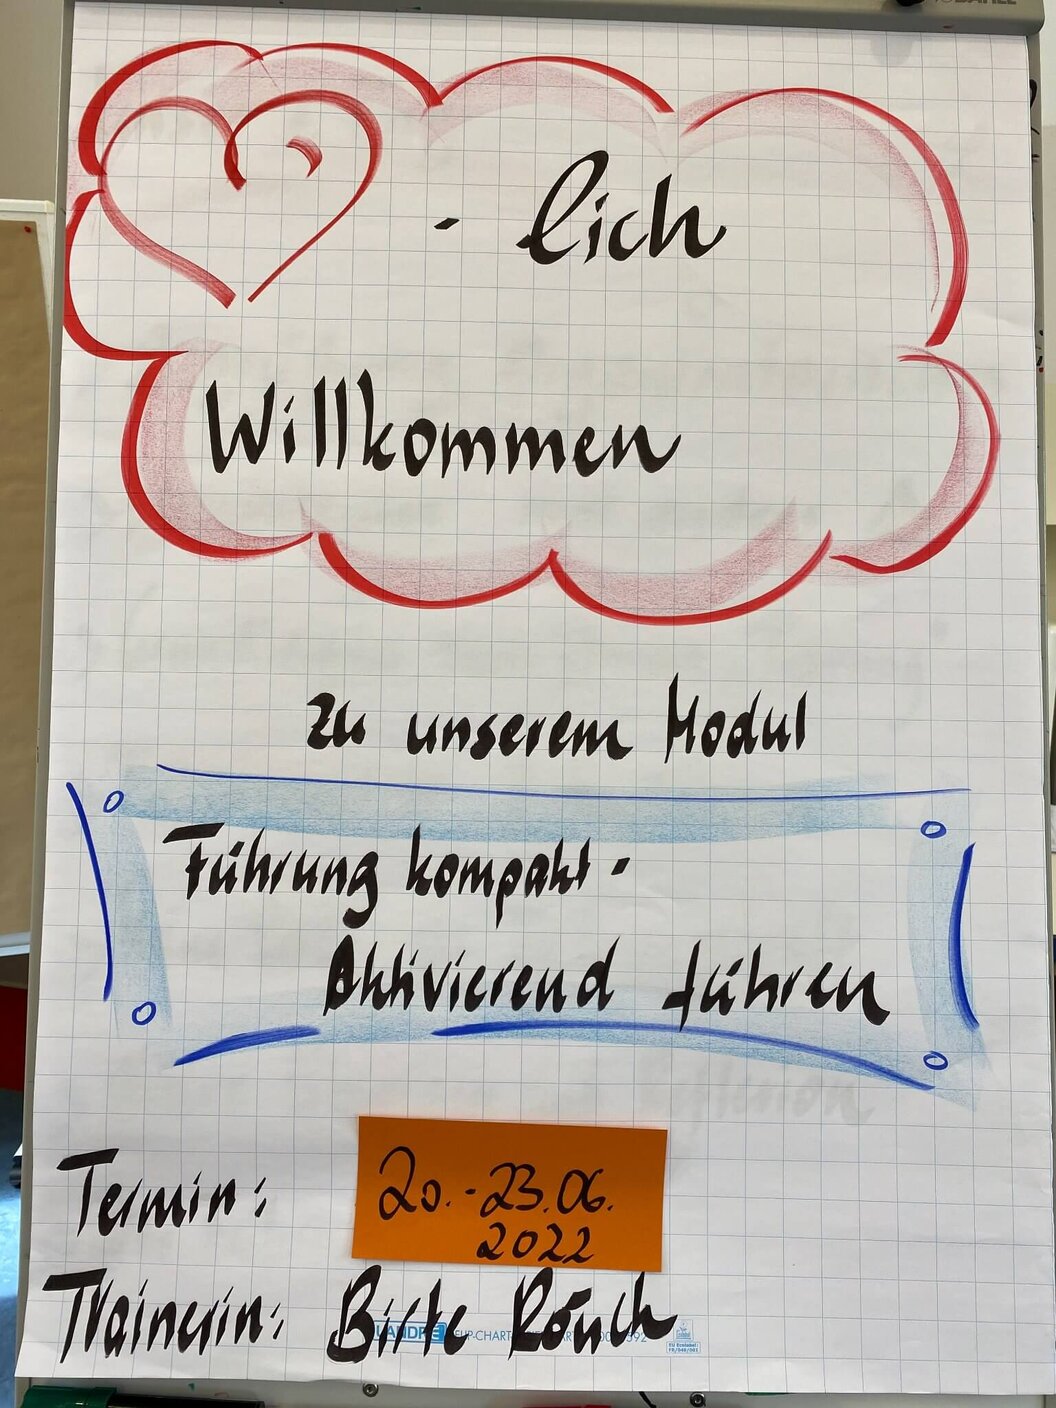 - lich
Willkommen
zu unserem Modul
Führung kompakt -
Aktivierend führen
Termin: 20.-23.06.
2022
Trainerin: Birte
LANDRÉ